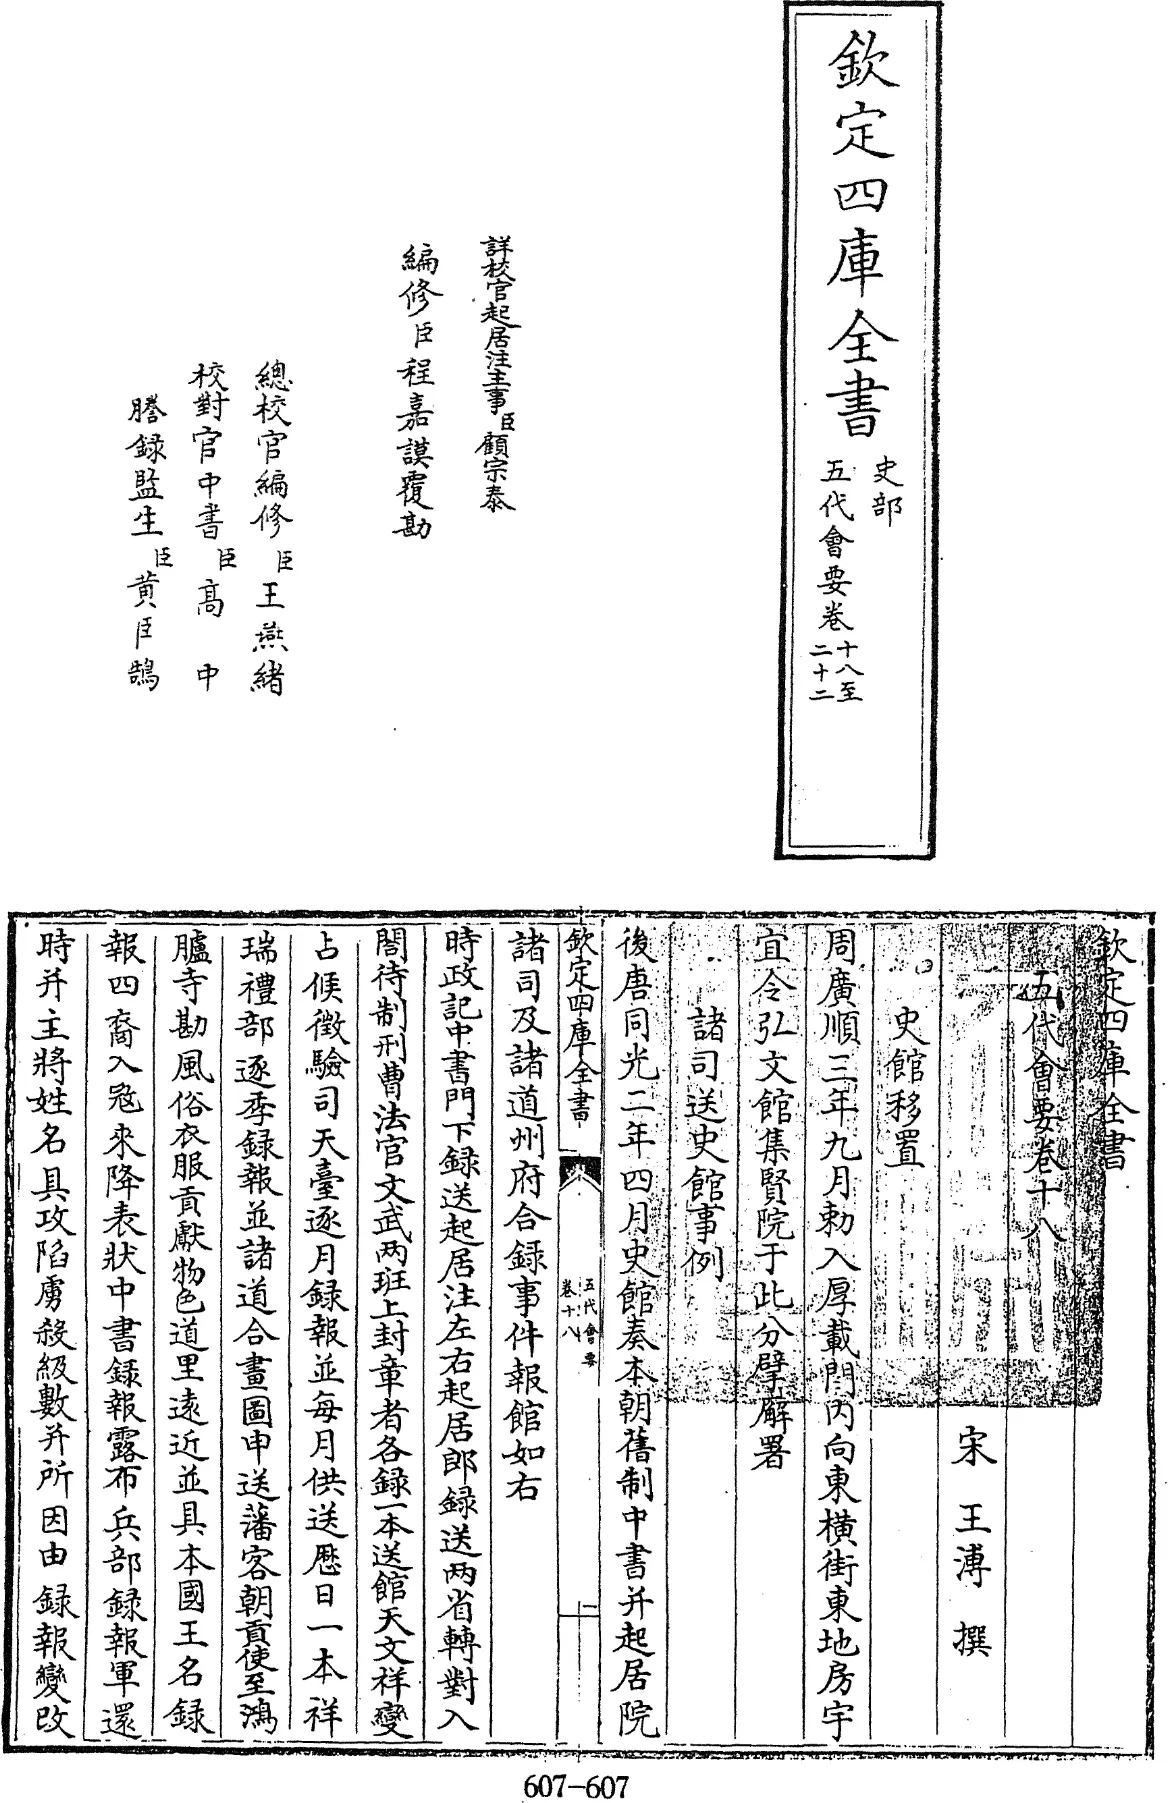 欽定四庫全書
史部
五代會要卷十八至二十二
詳校官起居注主事臣顧宗泰
編修臣程嘉謨覆勘
總校官編修臣王燕緒
校對官中書臣高中
謄錄監生臣黄臣鵠
欽定四庫全書
五代會要卷十八
宋王溥撰
史館移置
周廣順三年九月勅入厚載門内向東横街東地房宇
宜令弘文館集賢院于此分擘廨署
諸司送史館事例
後唐同光二年四月史館奏本朝舊制中書并起居院
欽定四庫全書
五代會要
卷十八
一
諸司及諸道州府合録事件報館如右
時政記中書門下録送起居注左右起居郎録送两省轉對入
閤待制刑曹法官文武两班上封章者各録一本送館天文祥變
占候徵驗司天臺逐月録報並每月供送厯日一本祥
瑞禮部逐季録報並諸道合畫圖申送藩客朝貢使至鴻
臚寺勘風俗衣服貢獻物色道里逺近並具本國王名録
報四裔入冦來降表狀中書録報露布兵部録報軍還
時并主將姓名具攻陷虜殺級數并所因由録報變改
607-607